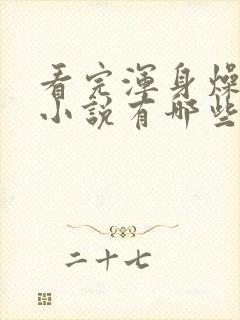 看完渾身燥
小說有哪些
二十七